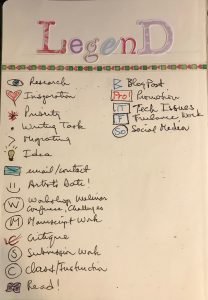 LegenD
Research
Inspiration
Priority
Writing Task
> Migrating
Idea
email/contact
Artist's Date!
W Workshop, Webinar
Conference, Challenges
M Manuscript Work
Critique
S Submission Work
C Class/Instruction
Read!
B Blog Post
Pro! Promotion
IT Tech Issues
F Freelance Work
So Social Media